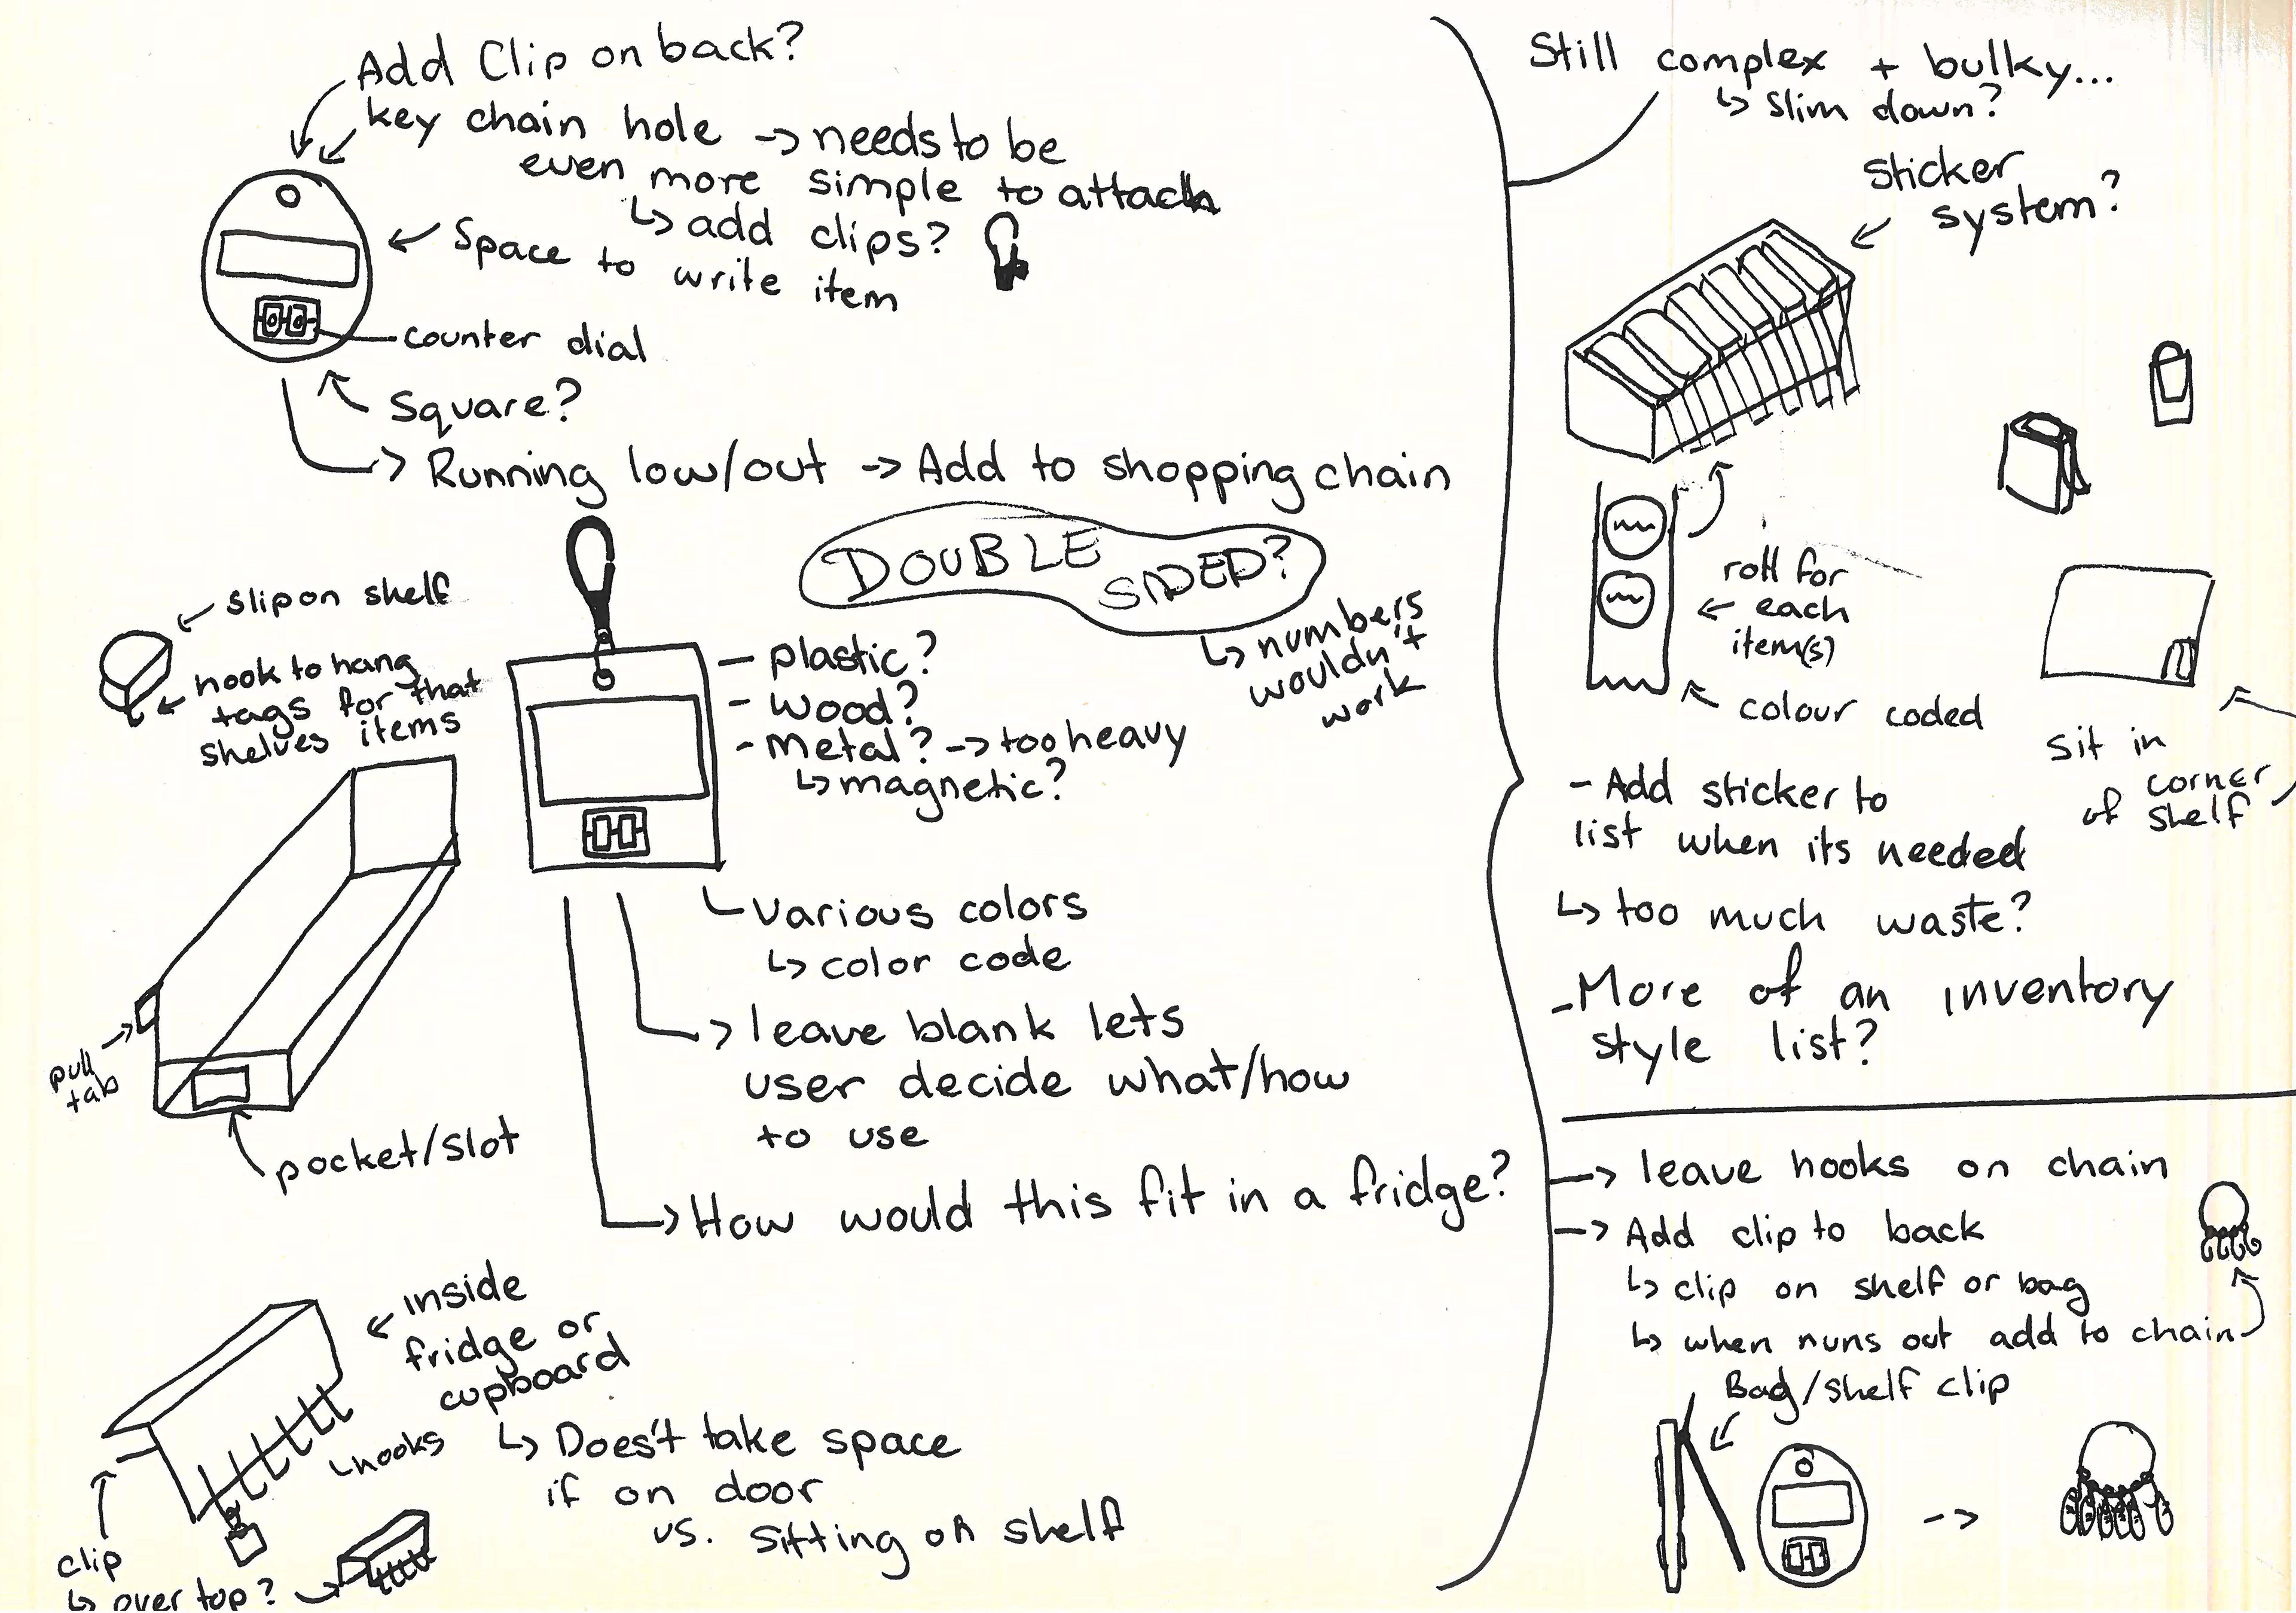 Add Clip on back?
key chain hole -> needs to be
even more simple to attach
↳ add clips?
Space to
write item
counter dial
Square?
Running low/out -> Add to shopping chain
DOUBLE
SIDED?
↳ numbers
wouldn't
work
slip on shelf
hook to hang
tags for that
shelves items
- plastic?
- wood?
- Metal? -> too heavy
↳ magnetic?
pull
tab
pocket/slot
Various colors
↳ color code
leave blank lets
user decide what/how
to use
How would this fit in a fridge?
inside
fridge or
cupboard
hooks
↳ Does't take space
if on door
vs. Sitting on shelf
clip
↳ over top?
Still complex + bulky...
↳ Slim down?
Sticker
system?
roll for
each
item(s)
colour coded
Sit in
corner
of shelf
- Add sticker to
list when its needed
↳ too much waste?
- More of an inventory
style list?
-> leave hooks on chain
-> Add clip to back
↳ clip on shelf or bag
↳ when runs out add to chain
Bag/shelf clip
->